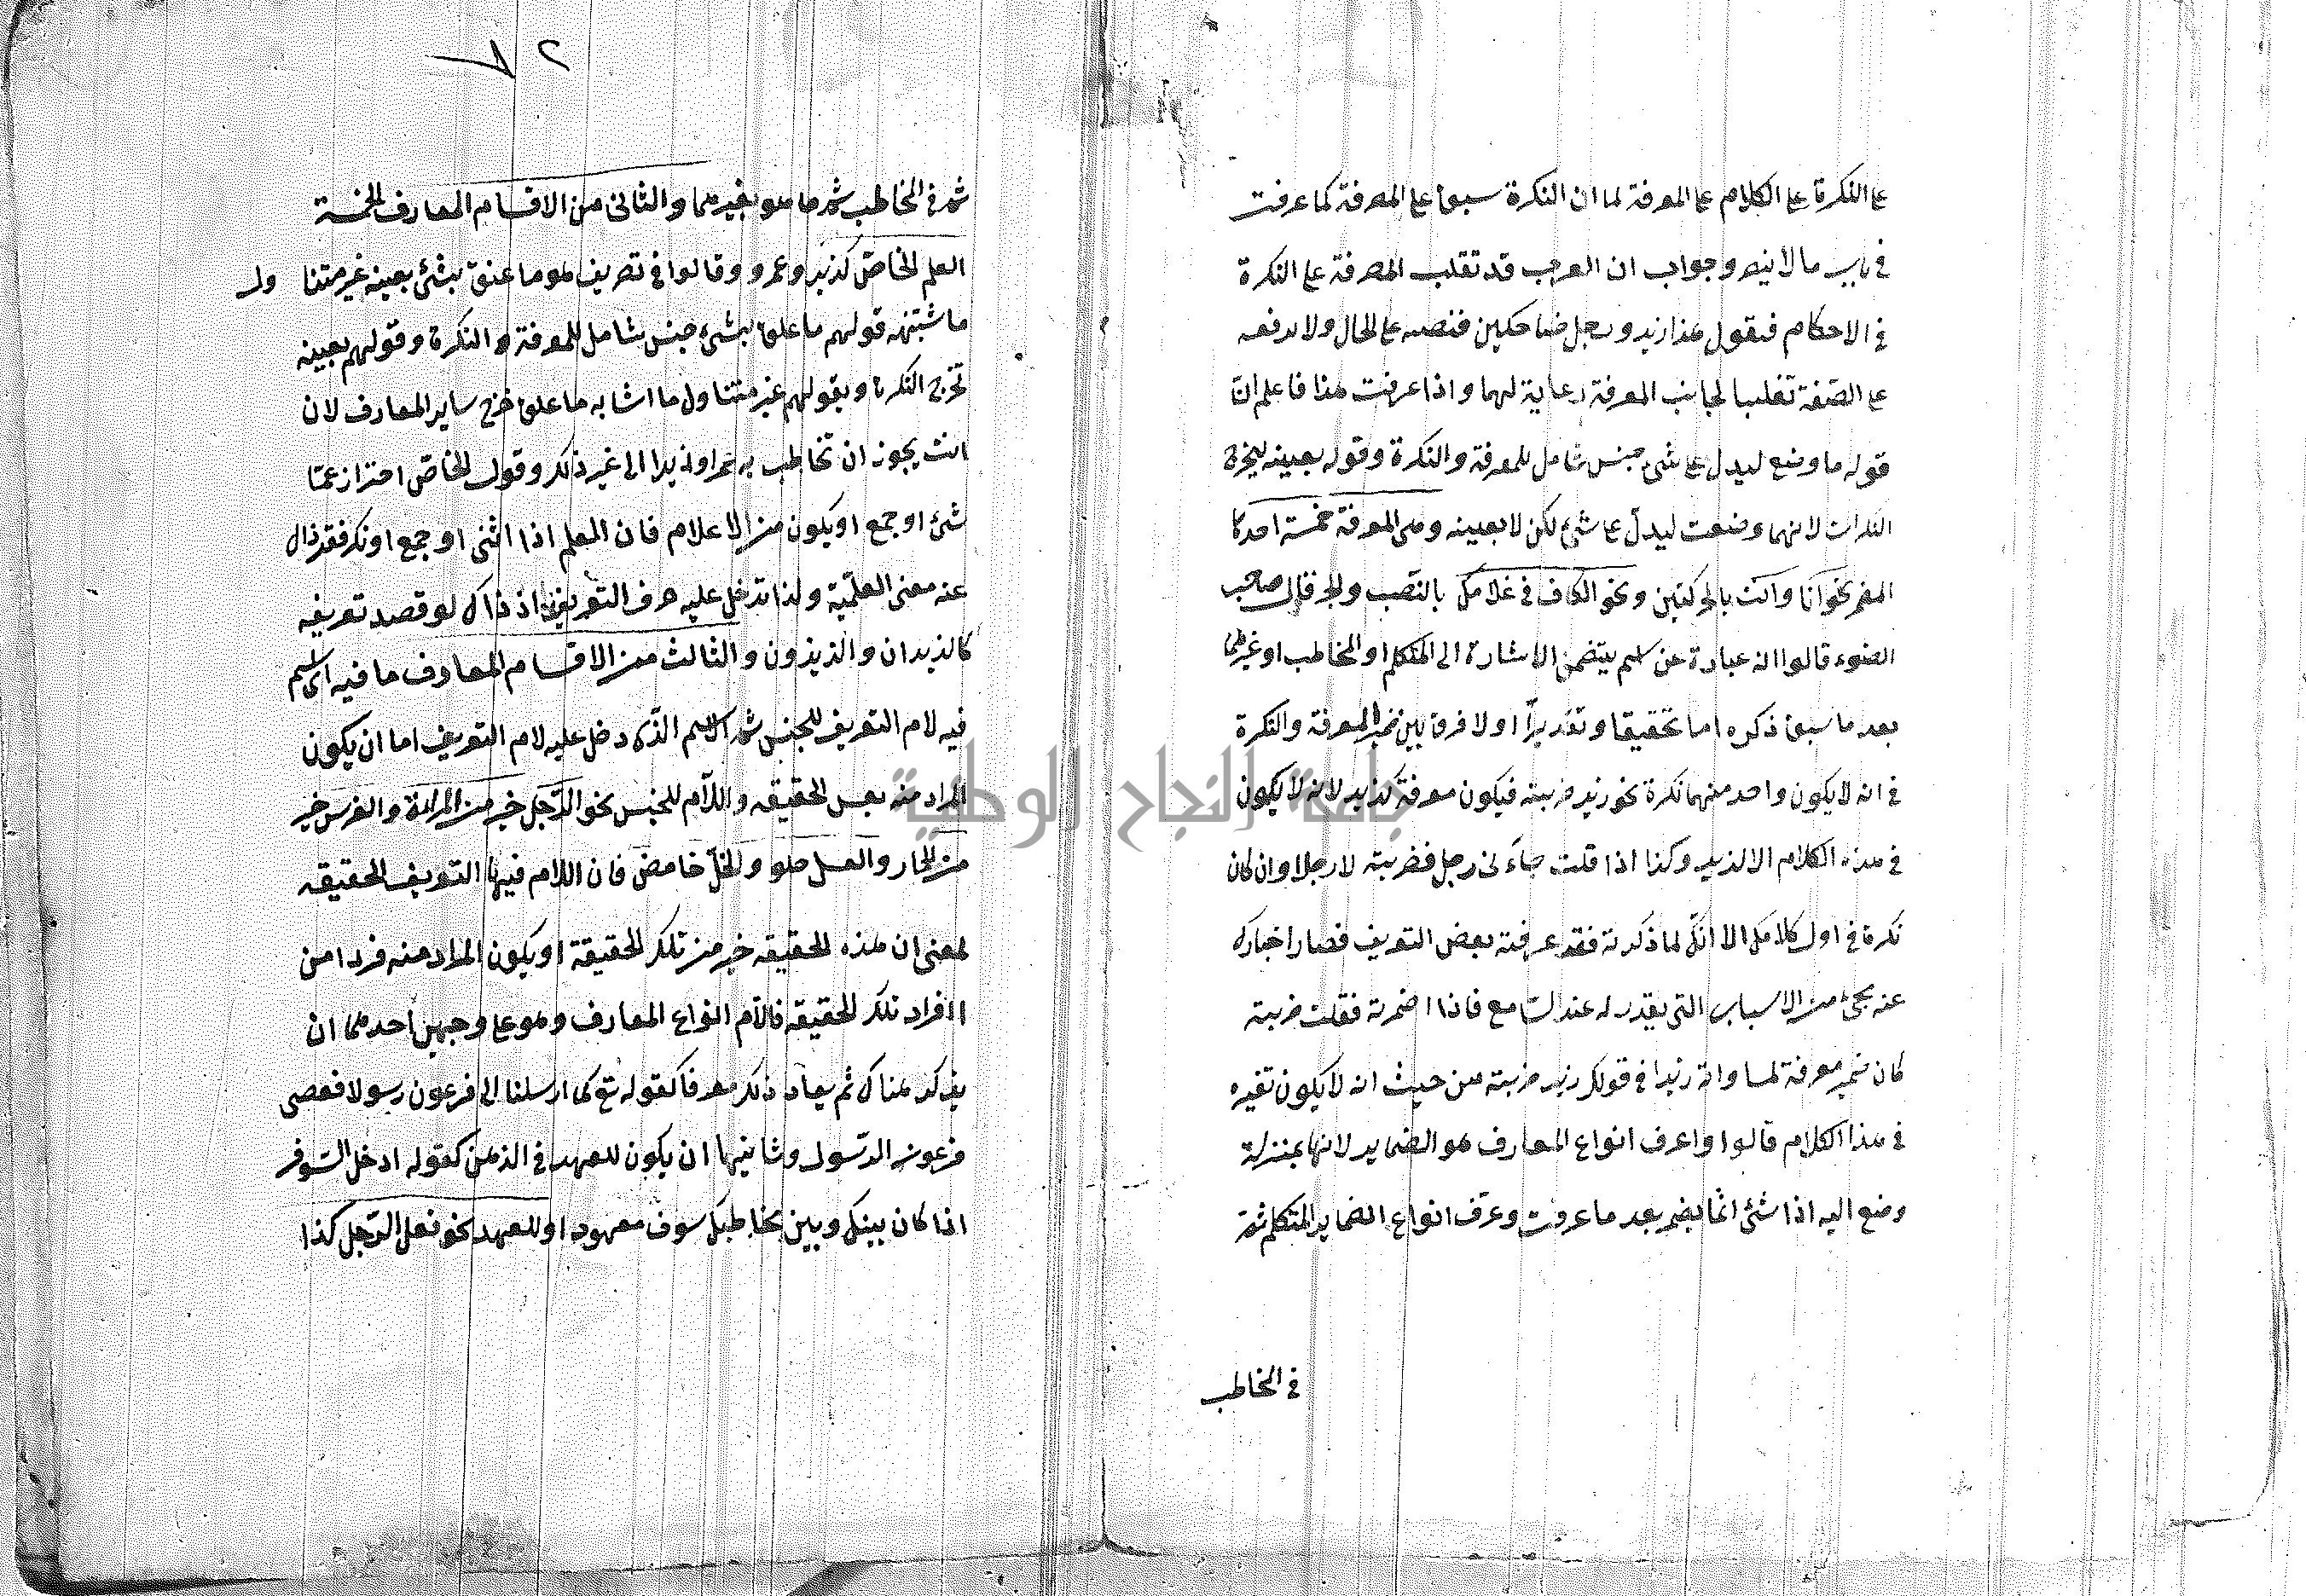 على النكرة على الكلام على المعرفة لما ان النكرة سبق على المعرفة كما عرفت
في باب ما لا ينصرف وجواب ان العرب قد تغلب المعرفة على النكرة
في الاحكام فنقول هذا زيد ورجل ضاحكين فنصبه على الحال ولا ترفعه
على الصفة تغليبا لجانب المعرفة رعاية لهما واذا عرفت هذا فاعلم ان
قوله ما وضع ليدل على شئ جنس شامل للمعرفة والنكرة وقوله بعينه ليخرج
النكرات لانها وضعت ليدل على شئ لكن لا بعينه وهى المعرفة خمسة احدها
المضمر نحو انا وانت بالحركتين ونحو الكاف في غلامك بالنصب والجر قال صاحب
الضوء قالوا انه عبارة عن اسم يتضمن الاشارة الى المتكلم او المخاطب او غيرهما
بعد ما سبق ذكره اما تحقيقا او تقديرا او لا فرق بين ضمير المعرفة والنكرة
في انه لا يكون واحد منهما نكرة نحو زيد ضربته فيكون معرفة كزيد لانه لا يكون
في هذه الكلام الا لزيد وكذا اذا قلت جاءنى رجل فضربته لا رجلا وان كان
نكرة في اول كلامك الا انك لما ذكرته فقد عرفته بعض التعريف فصار اخبارك
عنه بجئ من الاسباب التى يقدر له عند السامع فاذا اضمرته فقلت ضربته
كان ضمير معرفة لمساواته زيدا في قولك زيد ضربته من حيث انه لا يكون تغيره
في هذا الكلام قالوا واعرف انواع المعارف هو الضماير لانها بمنزلة
وضع اليه اذا شئ انما يضمر بعد ما عرفت وعرف انواع الضماير المتكلم ثمة
في المخاطب
٧٢
ثمة في المخاطب ثمة ما هو بغيرهما والثانى من الاقسام المعارف الخمسة
العلم الخاص كزيد وعمرو وقالوا في تعريف هو ما علق بشئ بعينه غير متنا ول
ما اشبهه قولهم ما علق بشئ جنس شامل للمعرفة والنكرة وقولهم بعينه
تخرج النكرة وبقولهم غير متناول ما اشابه ما علق خرج ساير المعارف لان
انت يجوز ان تخاطب به عمرا وزيدا الى غير ذلك وقول الخاص احتراز عما
شئ او جمع او يكون من الاعلام فان العلم اذا اثنى او جمع او نكر فقد زال
عنه معنى العلمية ولذا تدخل عليه حرف التعريف اذ ذاك لو قصد تعريفه
كالزيدان والزيدون والثالث من الاقسام المعارف ما فيه اى اسم
فيه لام التعريف للجنس ثمة الاسم الذى دخل عليه لام التعريف اما ان يكون
المراد منه بعض الحقيقه واللام للجنس نحو الرجل خير من المراة والفرس خير
من الحمار والعسل حلو والخل حامض فان اللام فيها التعريف الحقيقه
لمعنى ان هذه الحقيقه خير من تلك الحقيقة او يكون المراد منه فردا من
افراد تلك الحقيقه فاللام انواع المعارف وهو على وجهين احدهما ان
يذكر هناك ثم يعاد ذكر معرفا كقوله تع كما ارسلنا الى فرعون رسولا فعصى
فرعون الرسول وثانيها ان يكون للعهد في الذهن كقوله ادخل السوق
اذا كان بينك وبين مخاطبك سوف معهود او للعهد نحو فعل الرجل كذا
جامعة النجاح الوطنية